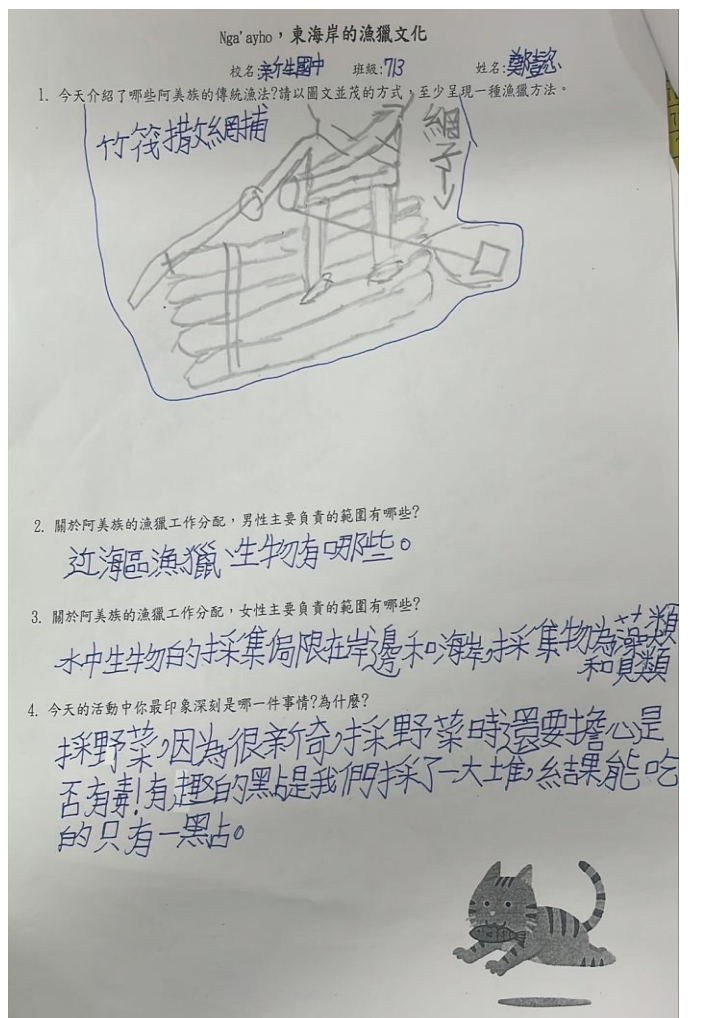 Nga'ayho，東海岸的漁獵文化
校名:新生國中 班級:713 姓名:鄭
1. 今天介紹了哪些阿美族的傳統漁法?請以圖文並茂的方式，至少呈現一種漁獵方法。
竹筏撒網捕
網子→
2. 關於阿美族的漁獵工作分配，男性主要負責的範圍有哪些?
近海區漁獵、生物有哪些。
3. 關於阿美族的漁獵工作分配，女性主要負責的範圍有哪些?
水中生生物的採集侷限在岸邊和海岸,採集物為藻類
和貝類
4. 今天的活動中你最印象深刻是哪一件事情?為什麼?
採野菜,因為很新奇,採野菜時還要擔心是
否有毒!有趣的點是我們採了一大堆,結果能吃
的只有一點。